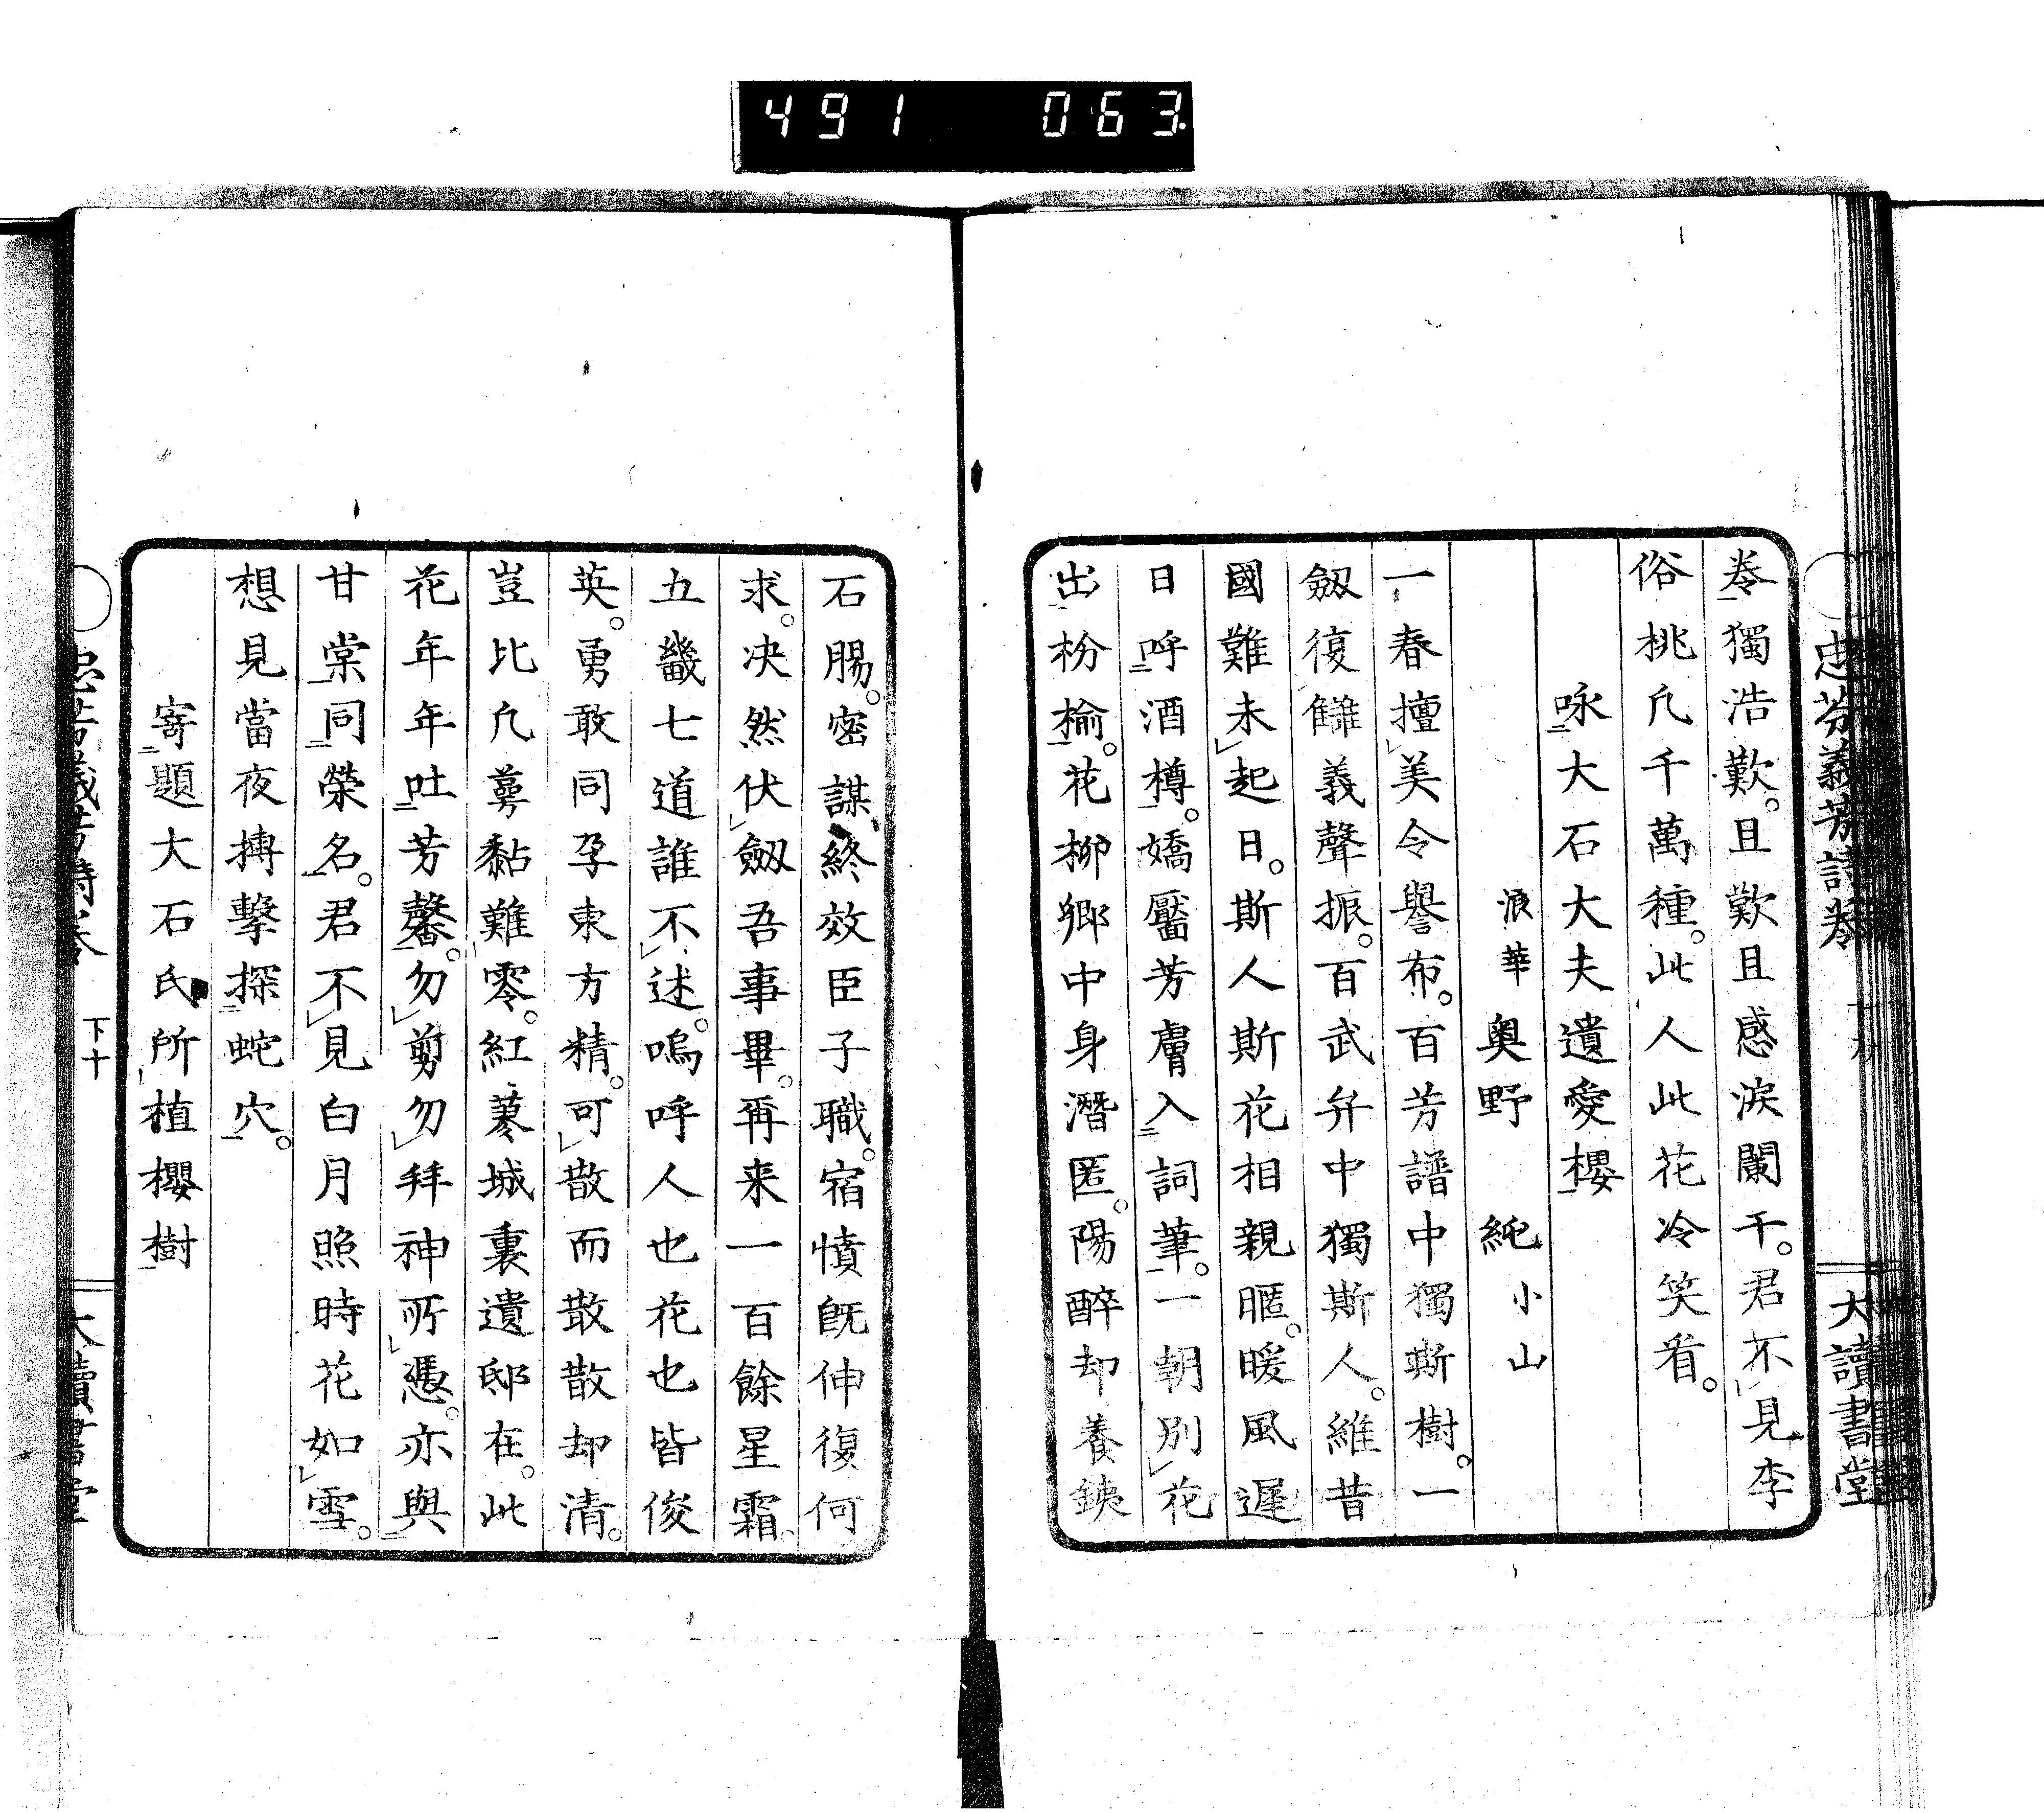 491 063
忠芬義芳詩卷
大讀書堂
桊獨浩歎。且歎且感淚闌干。君不見李
俗桃凡千萬種。此人此花冷笑看。
咏大石大夫遺愛櫻
浪華 奧野 純 小山
一春擅美令譽布。百芳譜中獨斯樹。一
劔復讎義聲振。百武弁中獨斯人。維昔
國難未起日。斯人斯花相親暱。暖風遲
日呼酒樽。嬌靨芳膚入詞筆。一朝別花
出枌楡。花柳鄉中身潛匿。陽醉却養鐵
石腸。密謀終效臣子職。宿憤旣伸復何
求。决然伏劔吾事畢。再来一百餘星霜
五畿七道誰不述。嗚呼人也花也皆俊
英。勇敢同孕東方精。可散而散散却清。
豈比凡蕚黏難零。紅蓼城裏遺邸在。此
花年年吐芳馨。勿剪勿拜神所憑。亦與
甘棠同榮名。君不見白月照時花如雪。
想見當夜搏擊探蛇穴。
寄題大石氏所植櫻樹
忠芬義芳詩卷
下十
大讀書堂